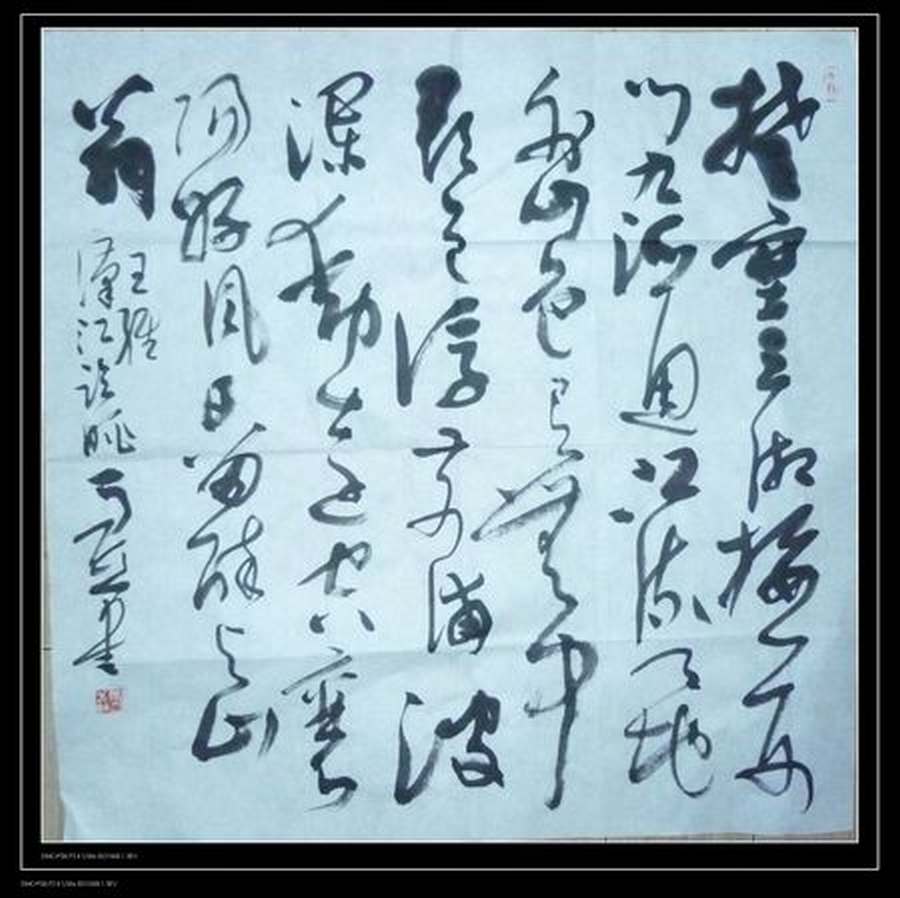 楚塞三湘接荆
门九派通江流天地
外山色有无中
郡邑浮前浦波
澜动远空襄
阳好风日留醉与山
翁
王维
漢江临眺
书